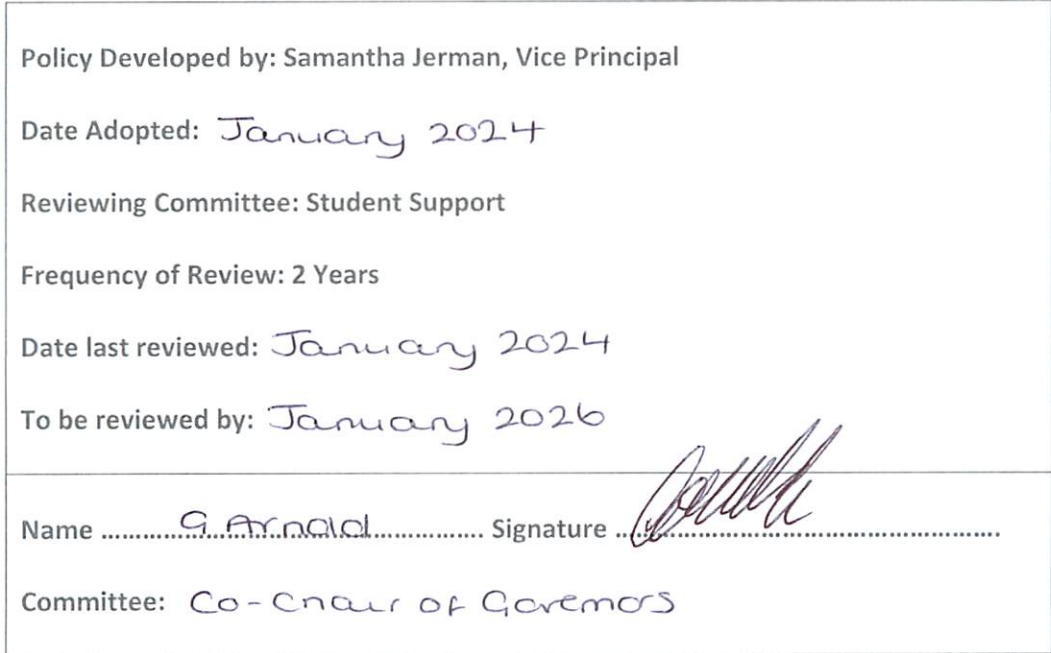 Policy Developed by: Samantha Jerman, Vice Principal
Date Adopted: January 2024
Reviewing Committee: Student Support
Frequency of Review: 2 Years
Date last reviewed: January 2024
To be reviewed by: January 2026
Name ........G. Arnold........ Signature ................
Committee: Co-Chair of Governors